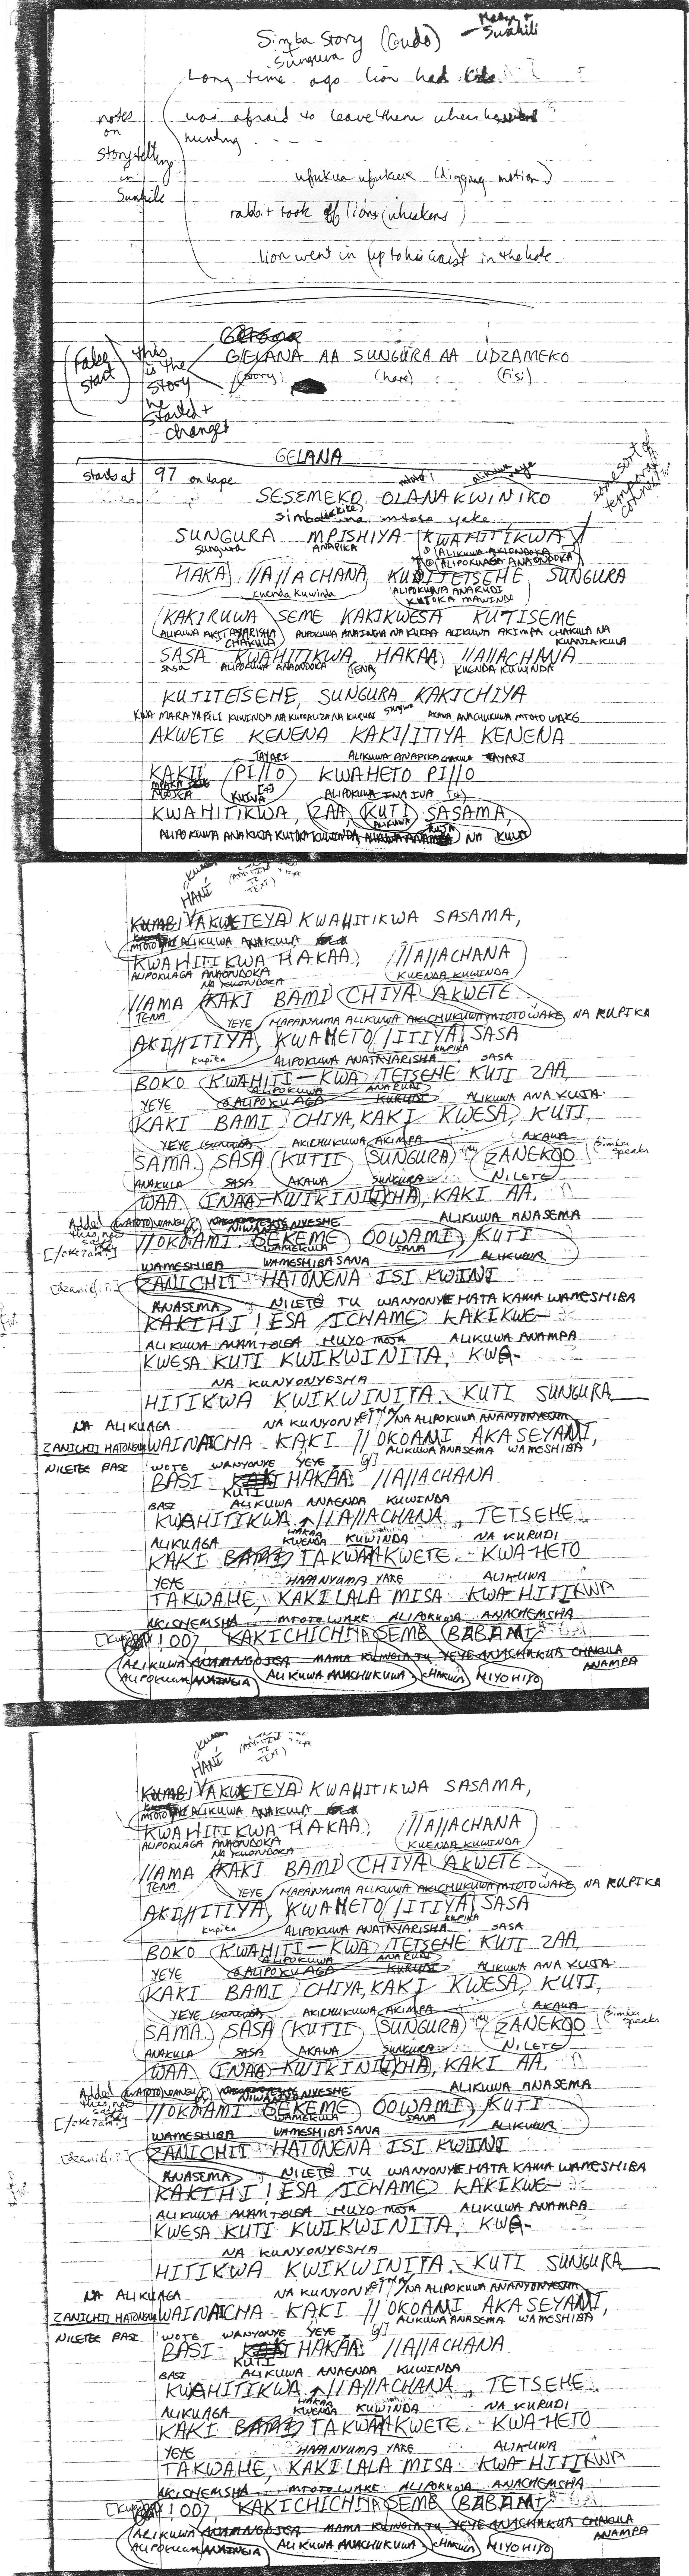 Simba Story (Gudo)
Sungura
Swahili
Long time ago lion had kids
was afraid to leave them when he went
hunting . - - -
notes
on
Storytelling
in
Swahili
ufukua ufukua (digging motion)
rabbit took off lions (whiskers)
lion went in (up to his waist in the hole
(False
start)
this
is the
story
he
started +
changed
GELANA AA SUNGURA AA UDZAMEKO
(story) (hare) (Fisi)
GELANA
starts at 97 on tape
some sort of
temporal
connect
SESEMEKO OLANAKWINIKO
simba na mtoto yake
SUNGURA MPISHIYA KWAHITIKWA
sungura ANAPIKA
ALIPOKUAGA ANAONDOKA
HAKA //A//ACHANA KUTITETSEHE SUNGURA
kuenda Kuwinda ALIPOKUWA ANARUDI
KUTOKA MAWINDO
KAKIRUWA SEME KAKIKWESA KUTISEME
ALIKUWA AKITAYARISHA CHAKULA ALIPOKUWA ANAINGIA NA KUKAA ALIKUWA AKIMPA CHAKULA NA KUANZA KULA
SASA KWAHITIKWA HAKAA //A//ACHANA
SASA ALIPOKUWA ANAONDOKA TENA KUENDA KUWINDA
KUTITETSEHE, SUNGURA KAKICHIYA
KWA MARA YAPILI KUWINDA NA KUMALIZA NA KURUDI sungura AKAWA ANACHUKUWA MTOTO WAKE
AKWETE KENENA KAKI/ITIYA KENENA
TAYARI ALIKUWA ANAPIKA CHAKULA TAYARI
KAKII PI//O KWAHETO PI//O
MPAKA MOJA KUIVA ALIPOKUWA INAIVA
KWAHITIKWA, ZAA KUTI SASAMA,
ALIPOKUWA ANAKUJA KUTOKA KUWINDA NA KULA
HANÍ
YAKWETEYA KWAHITIKWA SASAMA,
MTOTO ALIKUWA ANAKULA
KWAHITIKWA HAKAA, //A//ACHANA
ALIPOKUAGA ANAONDOKA KUENDA KUWINDA
//AMA KAKI BAMI CHIYA AKWETE
TENA YEYE HAPANYUMA ALIKUWA AKICHUKUWA MTOTO WAKE NA KUPIKA
AKI/HITIYA, KWAMETO /ITIYA SASA
kupika ALIPOKUWA ANATAYARISHA KUPIKA SASA
BOKO KWAHITI-KWA TETSEHE KUTI ZAA,
YEYE ALIPOKUAGA KURUDI ALIKUWA ANA KUJA
KAKI BAMI CHIYA, KAKI KWESA, KUTI,
YEYE (sungura) AKICHUKUWA AKIMPA AKAWA
SAMA. SASA KUTII SUNGURA ZANEKOO (Simba speaks
ANAKULA SASA AKAWA SUNGURA NILETE
WAA (INAA)-KWIKINI//CHA, KAKI AA.
WATOTO WANGU NIWANYONYESHE ALIKUWA ANASEMA
//OKOAMI GEKEME OOWAMI, KUTI
WAMESHIBA WAMEKULA WAMESHIBA SANA SANA ALIKUWA
ZANICHII HATONENA ISI KWINI
ANASEMA NILETE TU WANYONYE HATA KAMA WAMESHIBA
KAKIHI ! ESA ICHAME KAKIKWE-
ALIKUWA ANAMTOLEA HUYO MOJA ALIKUWA ANAMPA
KWESA KUTI KWIKWINITA, KWA-
NA KUNYONYESHA
HITIKWA KWIKWINITA. KUTI SUNGURA
NA ALIKUAGA NA KUNYONYESHA NA ALIPOKUWA ANANYONYESHA
ZANICHII HATONGU WAINAICHA KAKI //OKOAMI AKASEYAMI,
ALIKUWA ANASEMA WAMESHIBA
NILETEE BASI WOTE WANYONYE YEYE
BASI KUTI HAKAA: //A//ACHANA
BASI ALIKUWA ANAENDA KUWINDA
KWAHITIKWA HAKAA //A//ACHANA, TETSEHE
ALIKUAGA KWENDA KUWINDA NA KURUDI
KAKI TAKWAAKWETE. KWA-HETO
YEYE HAPANYUMA YAKE ALIKUWA
TAKWAHE, KAKILALA MISA KWA-HITIKWA
AKICHEMSHA MTOTO WAKE ALIPOKUWA ANACHEMSHA
!OO7, KAKICHICHIYA SEME BABAMI
ALIKUWA ANAMNGOJEA MAMA KUINGIA TU YEYE ANACHUKUA CHAKULA ANAMPA
ALIPOKUWA ANAINGIA ALIKUWA ANACHUKUWA CHAKULA HIYOHIYO
HANÍ
YAKWETEYA KWAHITIKWA SASAMA,
MTOTO ALIKUWA ANAKULA
KWAHITIKWA HAKAA, //A//ACHANA
ALIPOKUAGA ANAONDOKA KUENDA KUWINDA
//AMA KAKI BAMI CHIYA AKWETE
TENA YEYE HAPANYUMA ALIKUWA AKICHUKUWA MTOTO WAKE NA KUPIKA
AKI/HITIYA, KWAMETO /ITIYA SASA
kupika ALIPOKUWA ANATAYARISHA KUPIKA SASA
BOKO KWAHITI-KWA TETSEHE KUTI ZAA,
YEYE ALIPOKUAGA KURUDI ALIKUWA ANA KUJA
KAKI BAMI CHIYA, KAKI KWESA, KUTI,
YEYE (sungura) AKICHUKUWA AKIMPA AKAWA
SAMA. SASA KUTII SUNGURA ZANEKOO (Simba speaks
ANAKULA SASA AKAWA SUNGURA NILETE
WAA (INAA)-KWIKINI//CHA, KAKI AA.
WATOTO WANGU NIWANYONYESHE ALIKUWA ANASEMA
//OKOAMI GEKEME OOWAMI, KUTI
WAMESHIBA WAMEKULA WAMESHIBA SANA SANA ALIKUWA
ZANICHII HATONENA ISI KWINI
ANASEMA NILETE TU WANYONYE HATA KAMA WAMESHIBA
KAKIHI ! ESA ICHAME KAKIKWE-
ALIKUWA ANAMTOLEA HUYO MOJA ALIKUWA ANAMPA
KWESA KUTI KWIKWINITA, KWA-
NA KUNYONYESHA
HITIKWA KWIKWINITA. KUTI SUNGURA
NA ALIKUAGA NA KUNYONYESHA NA ALIPOKUWA ANANYONYESHA
ZANICHII HATONGU WAINAICHA KAKI //OKOAMI AKASEYAMI,
ALIKUWA ANASEMA WAMESHIBA
NILETEE BASI WOTE WANYONYE YEYE
BASI KUTI HAKAA: //A//ACHANA
BASI ALIKUWA ANAENDA KUWINDA
KWAHITIKWA HAKAA //A//ACHANA, TETSEHE
ALIKUAGA KWENDA KUWINDA NA KURUDI
KAKI TAKWAAKWETE. KWA-HETO
YEYE HAPANYUMA YAKE ALIKUWA
TAKWAHE, KAKILALA MISA KWA-HITIKWA
AKICHEMSHA MTOTO WAKE ALIPOKUWA ANACHEMSHA
!OO7, KAKICHICHIYA SEME BABAMI
ALIKUWA ANAMNGOJEA MAMA KUINGIA TU YEYE ANACHUKUA CHAKULA ANAMPA
ALIPOKUWA ANAINGIA ALIKUWA ANACHUKUWA CHAKULA HIYOHIYO